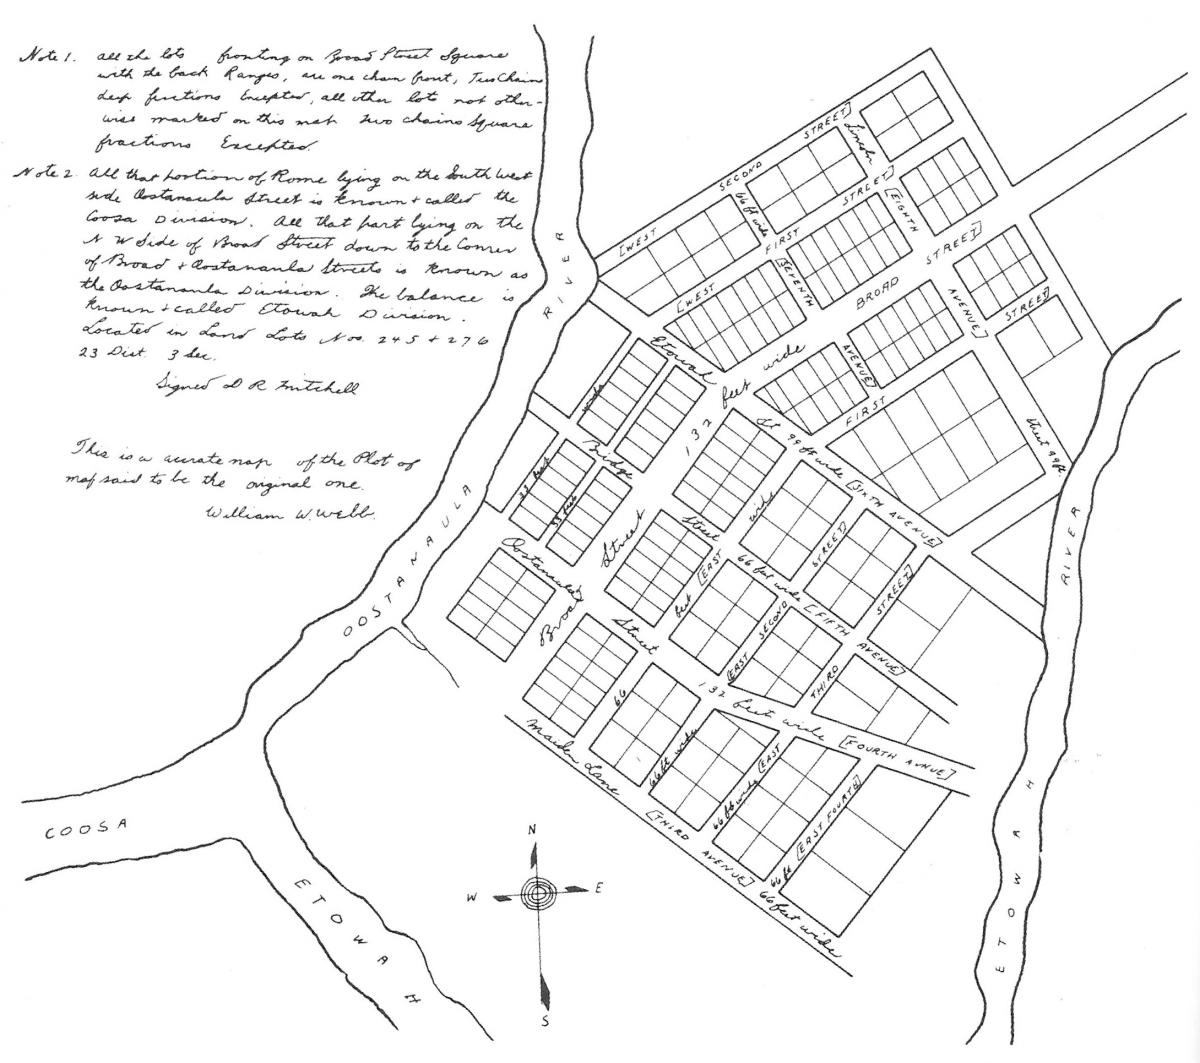 Note 1. all the lots fronting on Broad Street Square
with the back Ranges, are one chain front, Two Chain
deep fractions Excepted, all other lots not other-
wise marked on this map two chains Square
fractions Excepted.
Note 2. All that portion of Rome lying on the South West
side Oostanaula Street is known & called the
Coosa Division. All that part lying on the
N W Side of Broad Street down to the Corner
of Broad & Oostanaula Streets is known as
the Oostanaula Division. The balance is
known & called Etowah Division.
Located in Land Lots Nos. 245 & 276
23 Dist. 3 Sec.
Signed D R Mitchell
This is a accurate map of the Plot of
map said to be the original one.
William W. Webb.
[WEST SECOND STREET]
66 ft wide
Lincoln
[EIGHTH
[WEST FIRST STREET]
[SEVENTH
BROAD STREET]
AVENUE]
AVENUE]
FIRST STREET]
Street 99 ft.
Etowah
St 99 ft wide [SIXTH AVENUE]
132 feet wide
Bridge
Street
66 feet wide [FIFTH AVENUE]
33 feet
33 feet
wide
Oostanaula
Street
132 feet wide [FOURTH AVENUE]
Broad
Street
feet [EAST
wide
[EAST SECOND STREET]
THIRD STREET]
66
66 ft wide
66 ft wide [EAST
66 ft [EAST FOURTH]
Maiden Lane
[THIRD AVENUE] 66 feet wide
OOSTANAULA RIVER
COOSA
ETOWAH
ETOWAH RIVER
N
W E
S